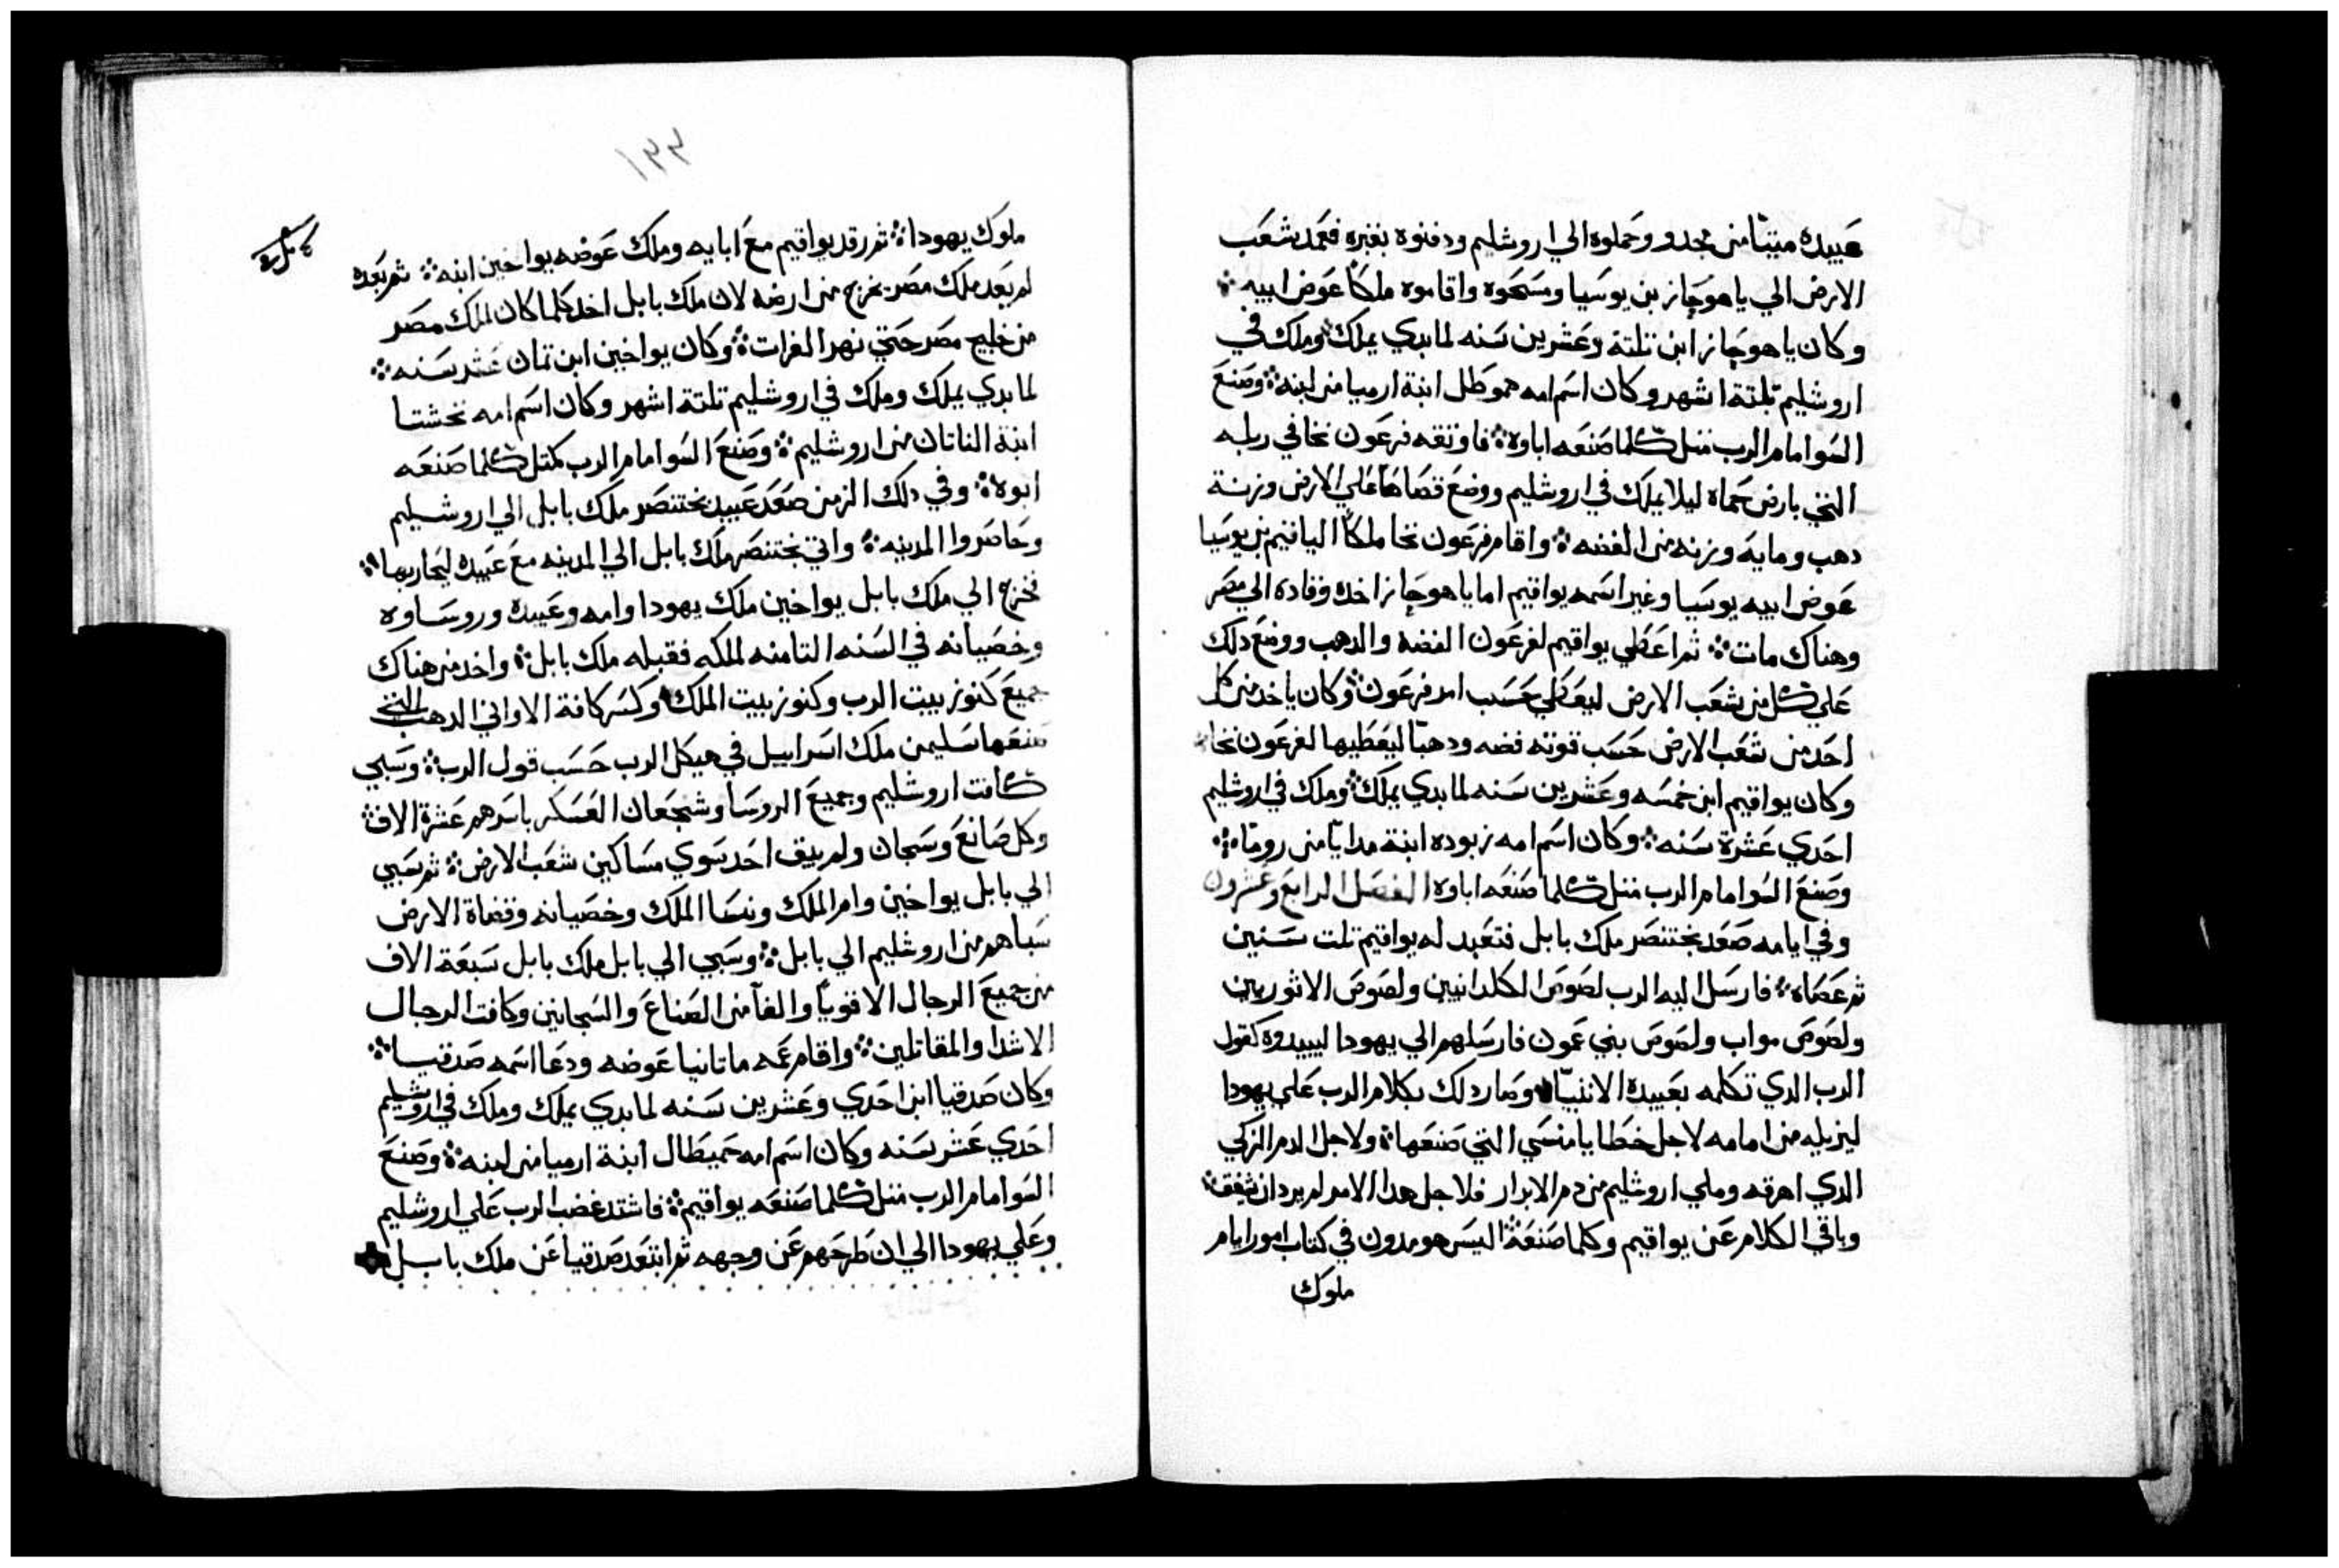 عبيده ميتا من مجدو وحملوه الي اروشليم ودفنوه بقبره فعمد شعب
الارض الي ياهوجاز بن يوسيا ومسحوه واقاموه ملكا عوض ابيه
وكان ياهوجاز ابن تلتة وعشرين سنه لما بدي يملك وملك في
اروشليم تلتة اشهر وكان اسم امه حموطل ابنة ارميا من لبنه وصنع
السوا امام الرب متل كلما صنعه اباوه فاوتقه فرعون نخا في ربله
التي بارض حماه ليلا يملك في اروشليم ووضع قصاصا علي الارض وزنة
دهب وماية وزنه من الفضه واقام فرعون نخا ملكا الياقيم بن يوسيا
عوض ابيه يوسيا وغير اسمه يواقيم اما ياهوجاز اخده وقاده الي مصر
وهناك مات ثم اعطي يواقيم لفرعون الفضه والدهب ووضع دلك
علي كل من شعب الارض ليعطي حسب امر فرعون وكان ياخد من كل
احد من شعب الارض حسب قوته فضه ودهبا ليعطيها لفرعون نخا
وكان يواقيم ابن خمسه وعشرين سنه لما بدي يملك وملك في اروشليم
احدي عشرة سنه وكان اسم امه زبوده ابنة مدايا من روما
وصنع السوا امام الرب متل كلما صنعه اباوه الفصل الرابع وعشرون
وفي ايامه صعد بختنصر ملك بابل فتعبد له يواقيم تلت سنين
ثم عصاه فارسل اليه الرب لصوص الكلدانيين ولصوص الاثوريين
ولصوص مواب ولصوص بني عمون فارسلهم الي يهودا ليبيدوه كقول
الرب الدي تكلمه بعبيده الانبيا وصار دلك بكلام الرب علي يهودا
ليزيله من امامه لاجل خطايا منسي التي صنعها ولاجل الدم الزكي
الدي اهرقه وملي اروشليم من دم الابرار فلاجل هدا الامر لم يرد ان يشفق
وباقي الكلام عن يواقيم وكلما صنعه اليس هو مدون في كتاب امور ايام
ملوك
١٣٣
ملوك يهودا ثم رقد يواقيم مع ابايه وملك عوضه يواخين ابنه ثم بعده
لم يعد ملك مصر يخرج من ارضه لان ملك بابل اخد كلما كان لملك مصر
من خليج مصر حتي نهر الفرات وكان يواخين ابن تمان عشر سنه
لما بدي يملك وملك في اروشليم تلتة اشهر وكان اسم امه نحشتا
ابنة الناتان من اروشليم وصنع السوا امام الرب كمتل كلما صنعه
ابوه وفي دلك الزمن صعد عبيد بختنصر ملك بابل الي اروشليم
وحاصروا المدينه واتي بختنصر ملك بابل الي المدينه مع عبيده ليحاربها
فخرج الي ملك بابل يواخين ملك يهودا وامه وعبيده وروساوه
وخصيانه في السنه التامنه لملكه فقبله ملك بابل واخد من هناك
جميع كنوز بيت الرب وكنوز بيت الملك وكسر كافة الاواني الدهب التي
صنعها سليمن ملك اسراييل في هيكل الرب حسب قول الرب وسبي
كافت اروشليم وجميع الروسا وشجعان العسكر باسرهم عشرة الاف
وكل صانع وسجان ولم يبق احد سوي مساكين شعب الارض ثم سبي
الي بابل يواخين وام الملك ونسا الملك وخصيانه وقضاة الارض
سباهم من اروشليم الي بابل وسبي الي بابل ملك بابل سبعة الاف
من جميع الرجال الاقويا والفا من الصناع والسجانين وكافت الرجال
الاشدا والمقاتلين واقام عمه ماتانيا عوضه ودعا اسمه صدقيا
وكان صدقيا ابن احدي وعشرين سنه لما بدي يملك وملك في اروشليم
احدي عشر سنه وكان اسم امه حميطال ابنة ارميا من لبنه وصنع
السوا امام الرب متل كلما صنعه يواقيم فاشتد غضب الرب علي اروشليم
وعلي يهودا الي ان طرحهم عن وجهه ثم ابتعد صدقيا عن ملك بابل